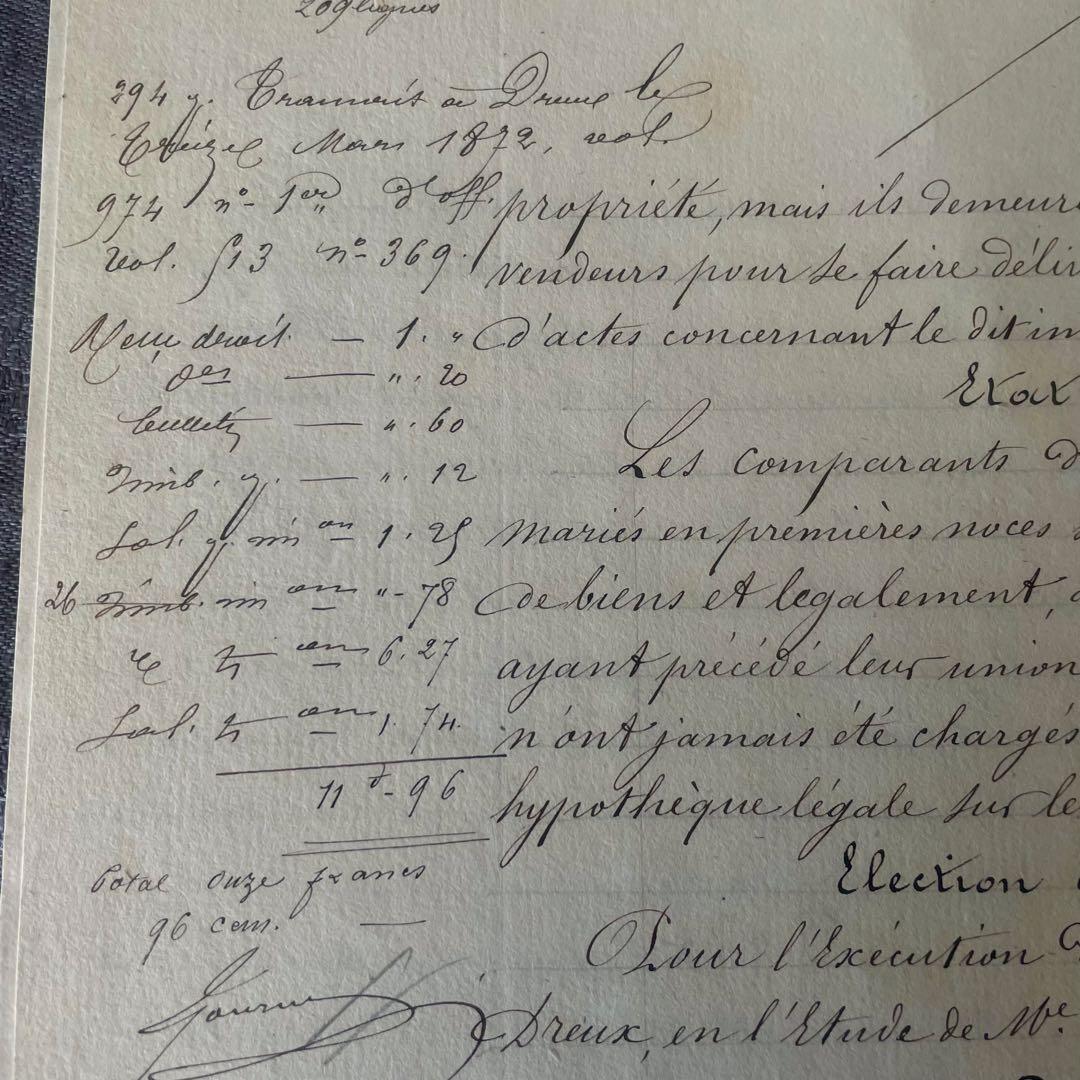 209 lignes
294 g. Transcrit à Dreux le
treize Mars 1872, vol.
974 n° 1er d'off.
vol. 513 n° 369.
Reçu droit. — 1. "
— ". 20
— ". 60
Timb. g. — ". 12
Sal. g. 1. 25
26 Timb. "- 78
6. 27
Sal. 1. 74.
11 - 96
Total onze francs
96 cen. —
propriété, mais ils demeure
vendeurs pour se faire déliv
d'actes concernant le dit im
Etat
Les comparants d
mariés en premières noces
de biens et legalement,
ayant précédé leur union
n'ont jamais été chargés
hypothèque légale sur le
Election
Pour l'Exécution
Dreux, en l'Etude de Me